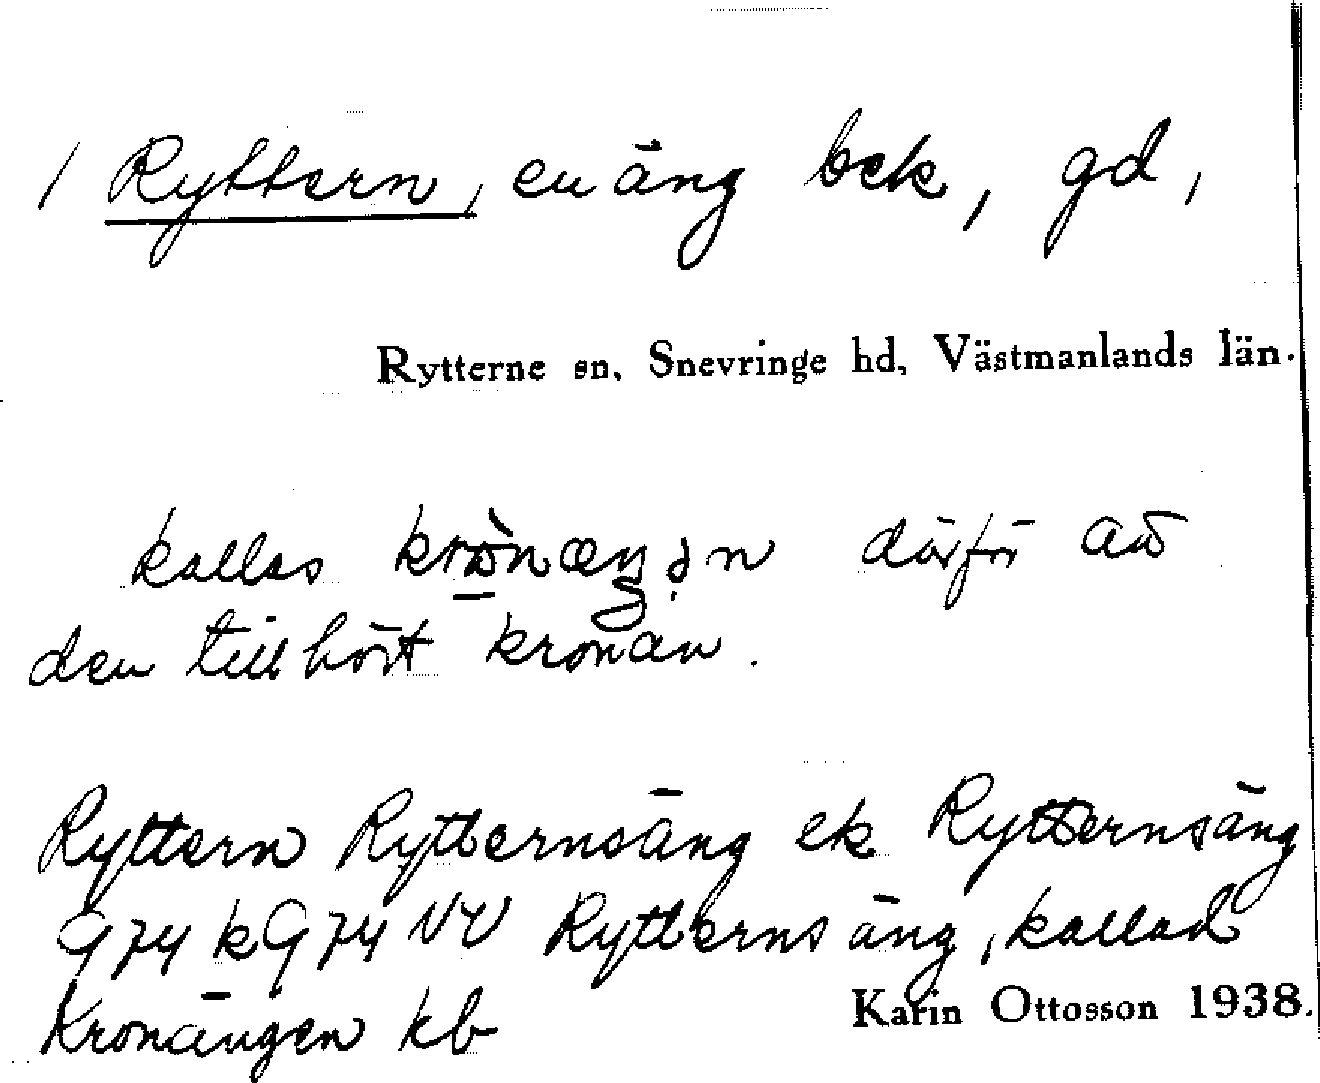 / Ryttern, en äng bek, gd,
Rytterne sn, Snevringe hd, Västmanlands län.
kallas krònæŋən därför att
den tillhört kronan.
Ryttern Rytternsäng ek Rytternsäng
G 74 k G 74 NV Rytternsäng, kallad
Kronängen kb
Karin Ottosson 1938.